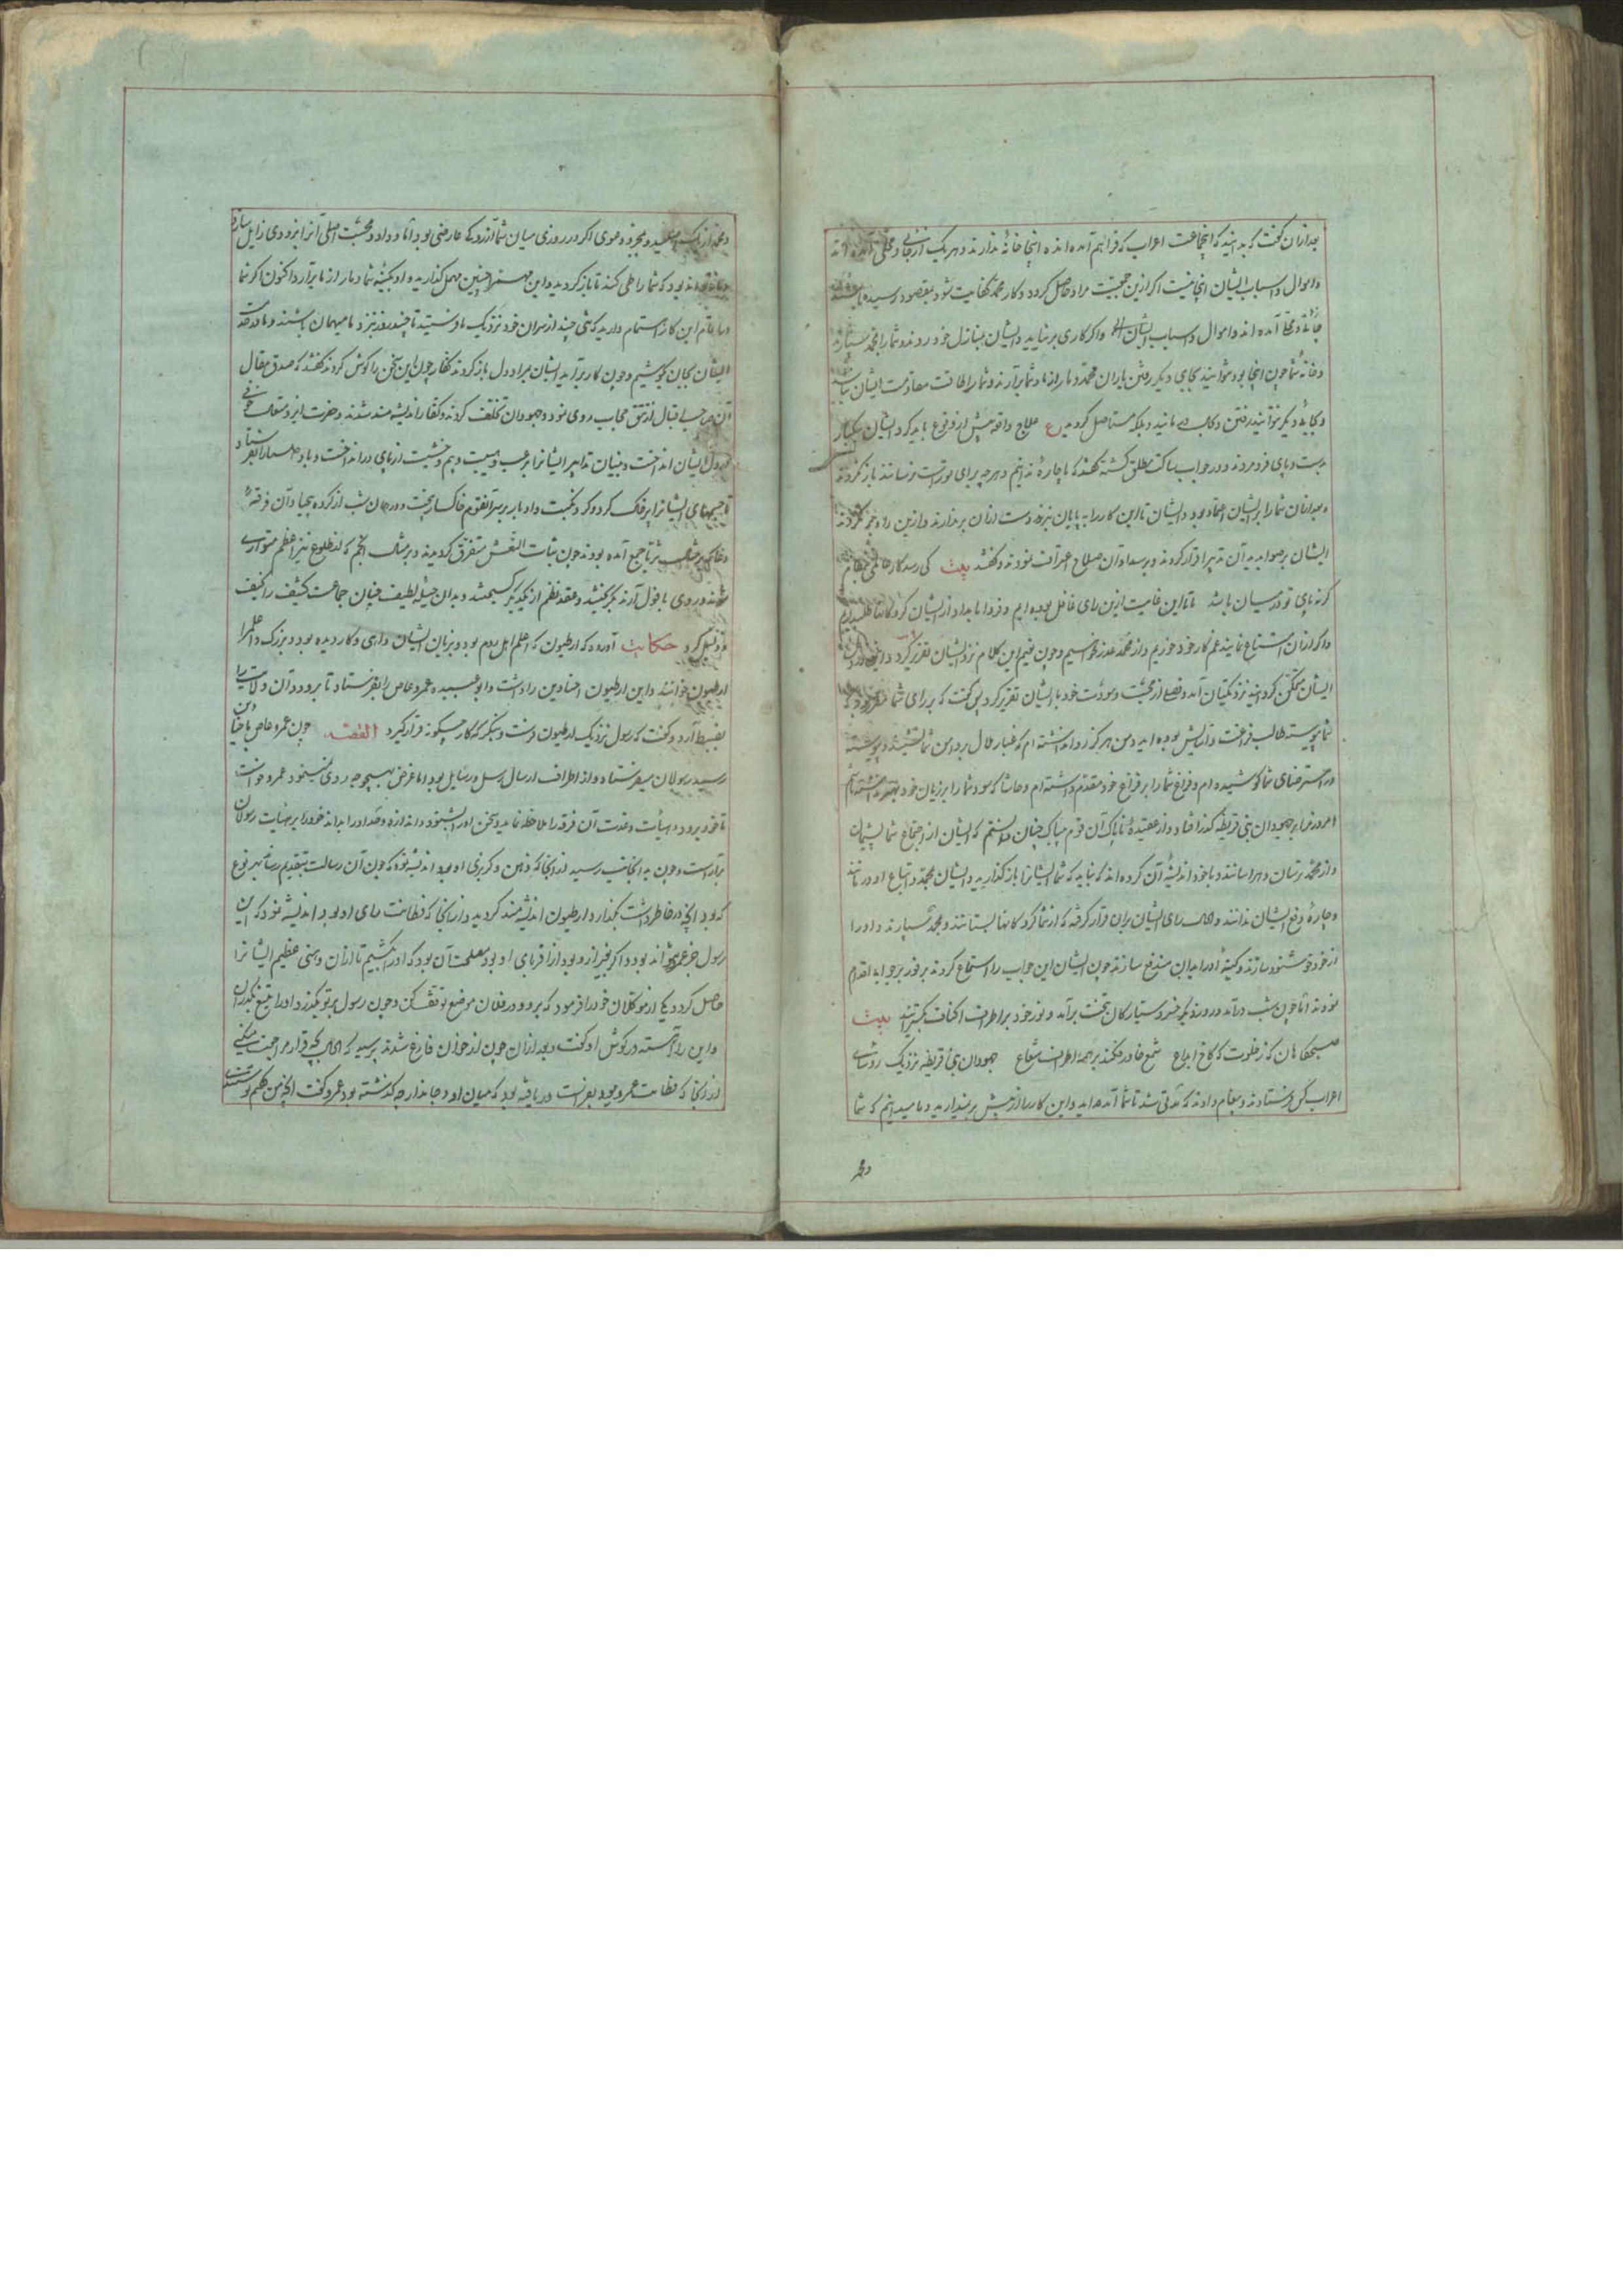 بعد ازان گفت که بدانید که اینجماعت اعراب که فراهم آمده اند اینجا خانهٔ ندارند و هر یک از جانبی و محلی آمده اند
و اموال و اسباب ایشان اینجا نیست اگر ازین جمعیت مراد حاصل کردد و کار محمد کفایت شود بمقصود رسیده باشند
آمده اند و اموال و اسباب ایشان و اگر کاری بر نیاید ایشان بمنازل خود روند و شما را بمحمد سپارند
و خانهٔ شما چون اینجا بود نتوانید بجای دیگر رفتن یاران محمد دمار از نهاد شما برآرند و شما را طاقت مقاومت ایشان نباشد
و بجای دیگر نتوانید رفتن و بلکه مستاصل کردید ع علاج واقعه پیش از وقوع باید کرد ایشان یکبار
بدست و پای فرو مردند و در جواب ساکت مطلق گشته گفتند که ما چاره ندانیم و هر چه برای تو راست
و بعد ازان شما را بر ایشان اعتماد بود و ایشان تا این کار را به پایان نبرند دست ازان بر ندارند و ازین راه
ایشان بر صوابدید آن تدبیر اقرار کردند و بر سداد آن صلاح اعتراف نمودند و گفتند بیت کی رسد کار
گرنه پای تو در میان باشد ما تا این غایت ازین رای غافل بوده ایم و فردا بامداد از ایشان گروگانها طلبیم
و اگر ازان امتناع نمایند غم کار خود خوریم و از محمد عذر خواهیم و چون نعیم این کلام نزد ایشان تقریر کرد
ایشان متمکن گردانید نزد مکیان آمد و فصلی از محبت و مودت خود با ایشان تقریر کرد پس گفت که بر رای شما
شما پیوسته طالب فراغت و آرایش بوده اید و من هرگز روا نداشته ام که غبار ملال بر دامن شما نشیند و پیوسته
در استرضای شما کوشیده ام و فراغ شما را بر فراغ خود مقدم داشته ام و حاشا که سود شما را بر زیان خود
امروز مرا بر جهودان بنی قریظه گذر افتاد و از عقیدهٔ ناپاک آن قوم بیباک چنان دانستم که ایشان از اجتماع شما پشیمان
و از محمد ترسان و هراسانند و با خود اندیشهٔ آن کرده اند که نباید که شما ایشانرا باز گذارید و ایشان محمد و اتباع او در مانند
و چارهٔ دفع ایشان ندانند و رای ایشان بران قرار گرفته که از شما گروگانها بستانند و بمحمد سپارند و او را
از خود خوشنود سازند و کینهٔ او را بدان مندفع سازند چون ایشان این جواب را استماع کردند بر فور بر جواب اقدام
نمودند اما چون شب درآمد و روز دیگر خسرو سیارگان بتخت برآمد و نور خود بر اطراف اکناف بگسترانید بیت
صبحگاهان که ز خلوت که کاخ ابداع شمع خاور فکند بر همه اطراف شعاع جهودان بنی قریظه نزدیک رؤسای
اعراب کس فرستادند و پیغام دادند که مدتی شد تا شما آمده اید و این کار را از پیش بر نمیدارید و ما میدانیم که شما
و محمد
و محمد از یک و موی اگر در روزی میان شما آزردگی عارضی بود اما وداد و محبت اصلی آنرا بزودی زایل سازد
بود که شما را طی کند تا باز گردید و این مهم را چنین مهمل گذارید و او بکینهٔ شما دمار از ما برآرد اکنون اگر شما
باتمام این کار اهتمام دارید کس چند از سران خود نزدیک ما فرستید تا چند روز نزد ما میهمان باشند و ما در خدمت
ایشان بجان بکوشیم و چون کار برآید ایشان بمراد دل باز گردند کفار چون این سخن را گوش کردند گفتند که صدق مقال
آن صاحب اقبال از تتق حجاب روی نمود و جهودان تخلف کردند و کفار اندیشه مند شدند و حضرت ایزد متعال
در دل ایشان انداخت و بنیان تدابیر ایشانرا برعب و هیبت و بیم و خشیت از پای در انداخت و باد صبا را فرستاد
تا خیمهای ایشانرا بر خاک کرد و گرد نکبت و ادبار بر سر آنقوم خاکسار بیخت و در همان شب از گروه بیحیا و آن فرقهٔ
دغا که بر مثال ثریا جمع آمده بودند چون بنات النعش متفرق گردیدند و بر مثال انجم که از طلوع نیر اعظم متواری
شوند روی بافول آرند بگریختند و عقد نظم از یکدیگر گسیختند و بدان حیلهٔ لطیف چنان جماعت کثیف را خفیف
و ذلیل کرد حکایت آورده که ارطبون که اعلم اهل روم بود و بزبان ایشان داهی و کار دیده بود و بزرگ و اعلم را
ارطبون خوانند و این ارطبون اجنادین را داشت و ابو عبیده عمرو عاص را بفرستاد تا برود و آن ولایت را
بضبط آرد و گفت که رسول نزدیک ارطبون فرست و بنگر که کار چگونه قرار گیرد القصه چون عمرو عاص باجنادین
رسید رسولان میفرستاد و از اطراف ارسال رسل و رسایل بود اما غرض بهیچوجه روی نمینمود عمرو خواست
تا خود برود و هیأت و عدت آن فرقه را ملاحظه نماید و سخن او را بشنود و اندازه و حد او را بداند خود را بر هیأت رسولان
بیاراست و چون به آنجانب رسید از آنجا که ذهن و گربزی او بود اندیشه نمود که چون آن رسالت بتقدیم رسانید بر نوع
که بود آنچه در خاطر داشت بگذارد ارطبون اندیشه مند گردید و از آنجا که فطانت رای او بود اندیشه نمود که این
رسول جز عمرو نتواند بود و اگر بغیر از و بود از اقربای او بود مصلحت آن بود که او را بکشیم تا ازان وهنی عظیم ایشانرا
حاصل گردد یکی از موکلان خود را فرمود که برو و در فلان موضع توقف کن و چون رسول بر تو بگذرد او را بتیغ بگذران
و این را آهسته در گوش او گفت و بعد ازان چون از خوان فارغ شدند پرسید که الحال بچه قرار مراجعت میکنی
از آنجا که فطانت عمرو بود بفراست دریافته بود که میان او و جاندار چه گذشته بود عمرو گفت آنچه من